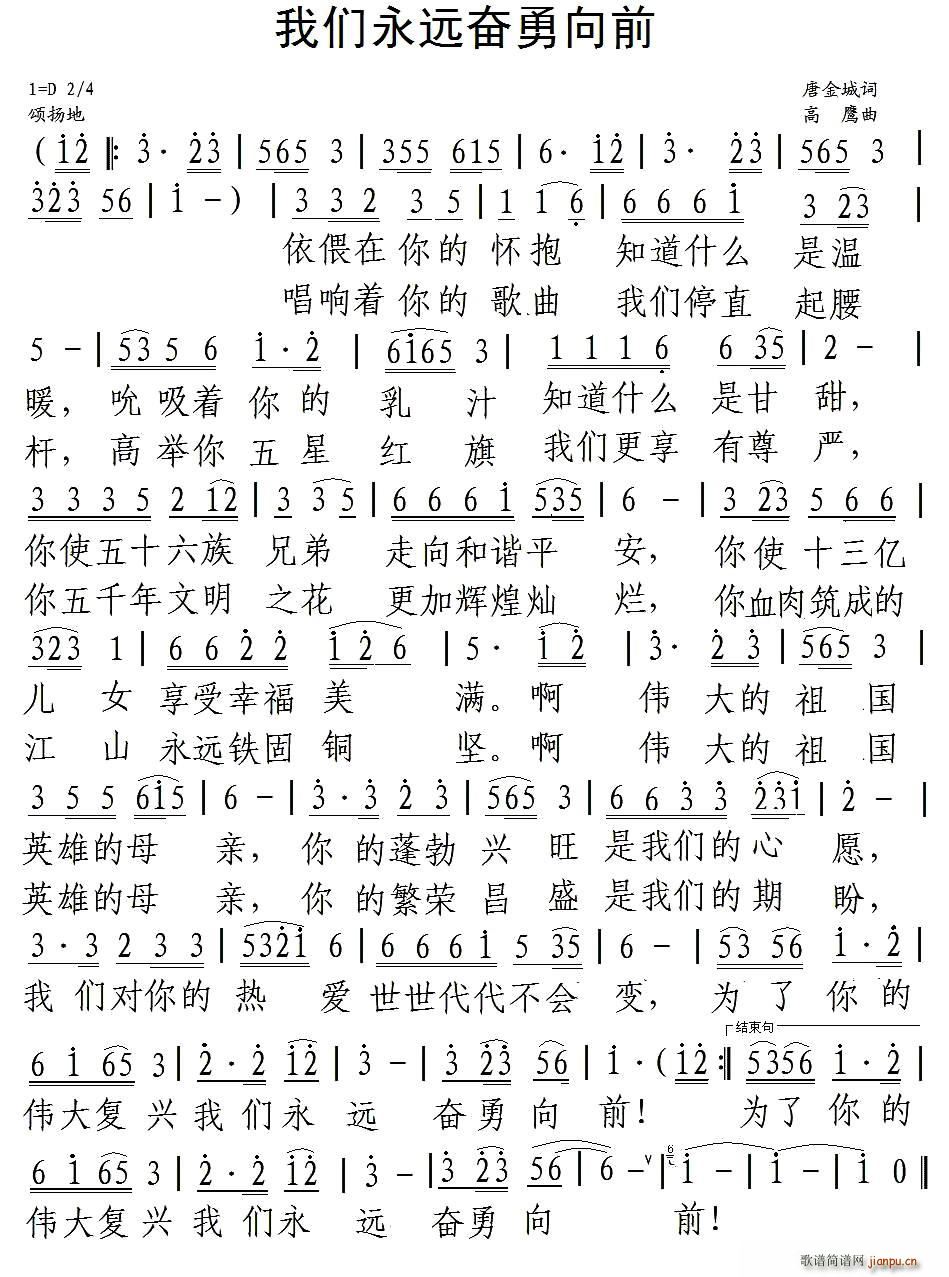 我们永远奋勇向前
1=D 2/4 唐金城词
颂扬地 高 鹰曲
(i2 ‖: 3· 23 | 565 3 | 355 615 | 6· i2 | 3· 23 | 565 3 |
323 56 | i -) | 3 3 2 3 5 | 1 1 6 | 6 6 6 i 3 23 |
依偎在你的 怀抱 知道什么 是温
唱响着你的 歌曲 我们停直 起腰
5 - | 53 5 6 i·2 | 6i65 3 | 1 1 1 6 6 35 | 2 - |
暖，吮吸着你的 乳 汁 知道什么 是甘 甜，
杆，高举你五星 红 旗 我们更享 有尊 严，
3 3 3 5 2 12 | 3 3 5 | 6 6 6 i 535 | 6 - | 3 23 5 6 6 |
你使五十六族 兄弟 走向和谐平 安，你使十三亿
你五千年文明 之花 更加辉煌灿 烂，你血肉筑成的
323 1 | 6 6 2 2 i 2 6 | 5· i 2 | 3· 2 3 | 565 3 |
儿 女 享受幸福 美 满。啊 伟 大的 祖 国
江 山 永远铁固 铜 坚。啊 伟 大的 祖 国
3 5 5 6i5 | 6 - | 3·3 2 3 | 565 3 | 6 6 3 3 23i | 2 - |
英雄的母 亲，你 的蓬勃 兴 旺 是我们的心 愿，
英雄的母 亲，你 的繁荣 昌 盛 是我们的期 盼，
3·3 2 3 3 | 532i 6 | 6 6 6 i 5 35 | 6 - | 53 56 i·2 |
我 们对你的 热 爱 世世代代不会 变，为 了 你 的
结束句
6 i 65 3 | 2·2 i2 | 3 - | 3 23 56 | i·(i2 :‖ 5356 i·2 |
伟大复 兴 我 们永 远 奋勇向 前！ 为了 你 的
6 i 65 3 | 2·2 i2 | 3 - | 3 23 56 | 6 - ∨ | 6 i - | i - | i 0 ‖
伟大复 兴 我 们永 远 奋勇向 前！
歌谱简谱网 jianpu.cn